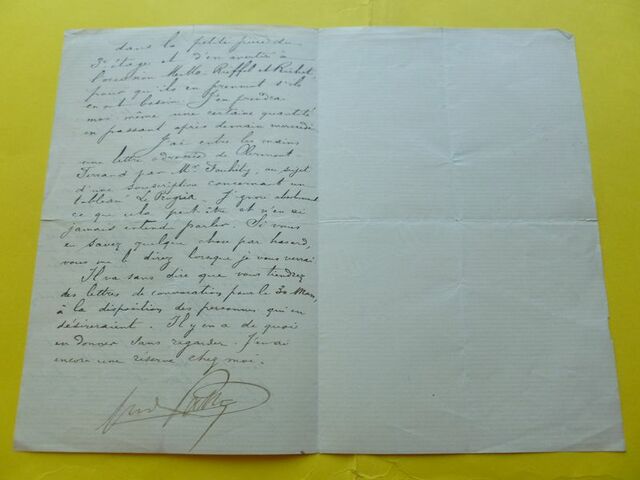 dans la petite pièce du
3e étage et d'en avertir à
l'occasion MM. Ruffel et Richet
pour qu'ils en prennent s'ils
en ont besoin. J'en prendrai
moi même une certaine quantité
en passant après demain mercredi
J'ai entre les mains
une lettre adressée de Clermont
Ferrand par Mr. au sujet
d'une souscription concernant un
tableau Le J'ignore absolument
ce que cela peut être et n'en ai
jamais entendu parler. Si vous
en savez quelque chose par hasard,
vous me le direz lorsque je vous verrai
Il va sans dire que vous tiendrez
des lettres de convocation pour le 30 Mars,
à la disposition des personnes qui en
désireraient. Il y en a de quoi
en donner sans regarder. J'en ai
encore une réserve chez moi.